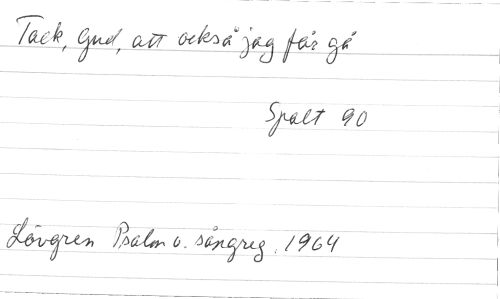 Tack, Gud, att också jag får gå
Spalt 90
Lövgren Psalm o. sångreg. 1964